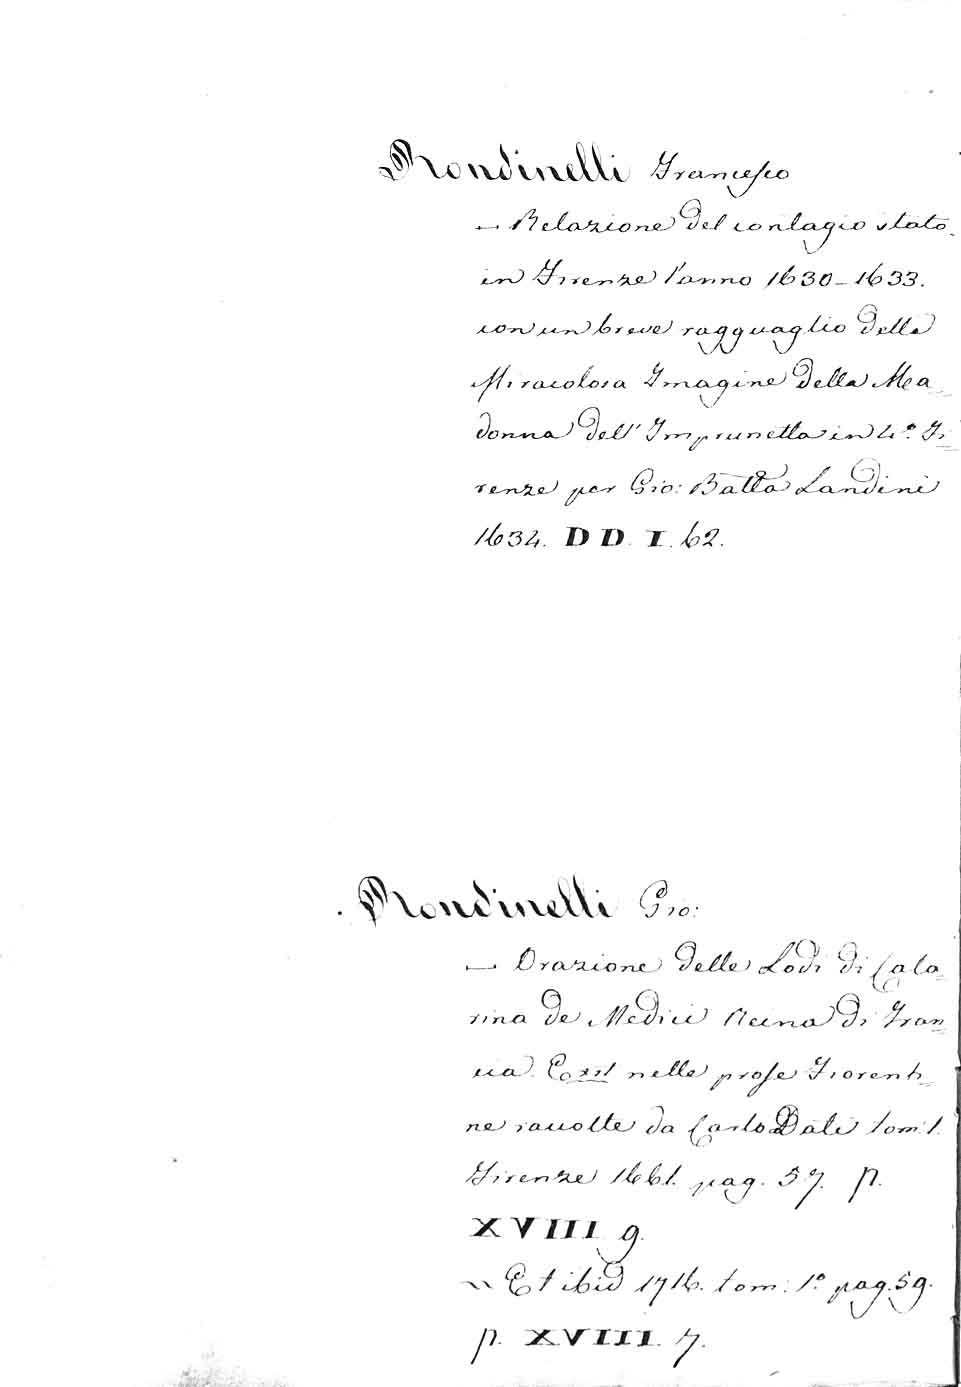 Rondinelli Francesco
— Relazione del contagio stato
in Firenze l'anno 1630-1633.
con un breve ragguaglio della
Miracolosa Imagine della Ma=
donna dell'Imprunetta in 4.° Fi=
renze per Gio: Batta Landini
1634. DD. I. 62.
Rondinelli Gio:
— Orazione delle Lodi di Cate=
rina de Medici Reina di Fran=
cia. nelle prose Fiorenti=
ne raccolte da Carlo Dati tom: 1.
Firenze 1661. pag. 57. p.
XVIII 9.
~ Et ibid 1716. tom: 1.° pag. 59.
p. XVIII. 7.